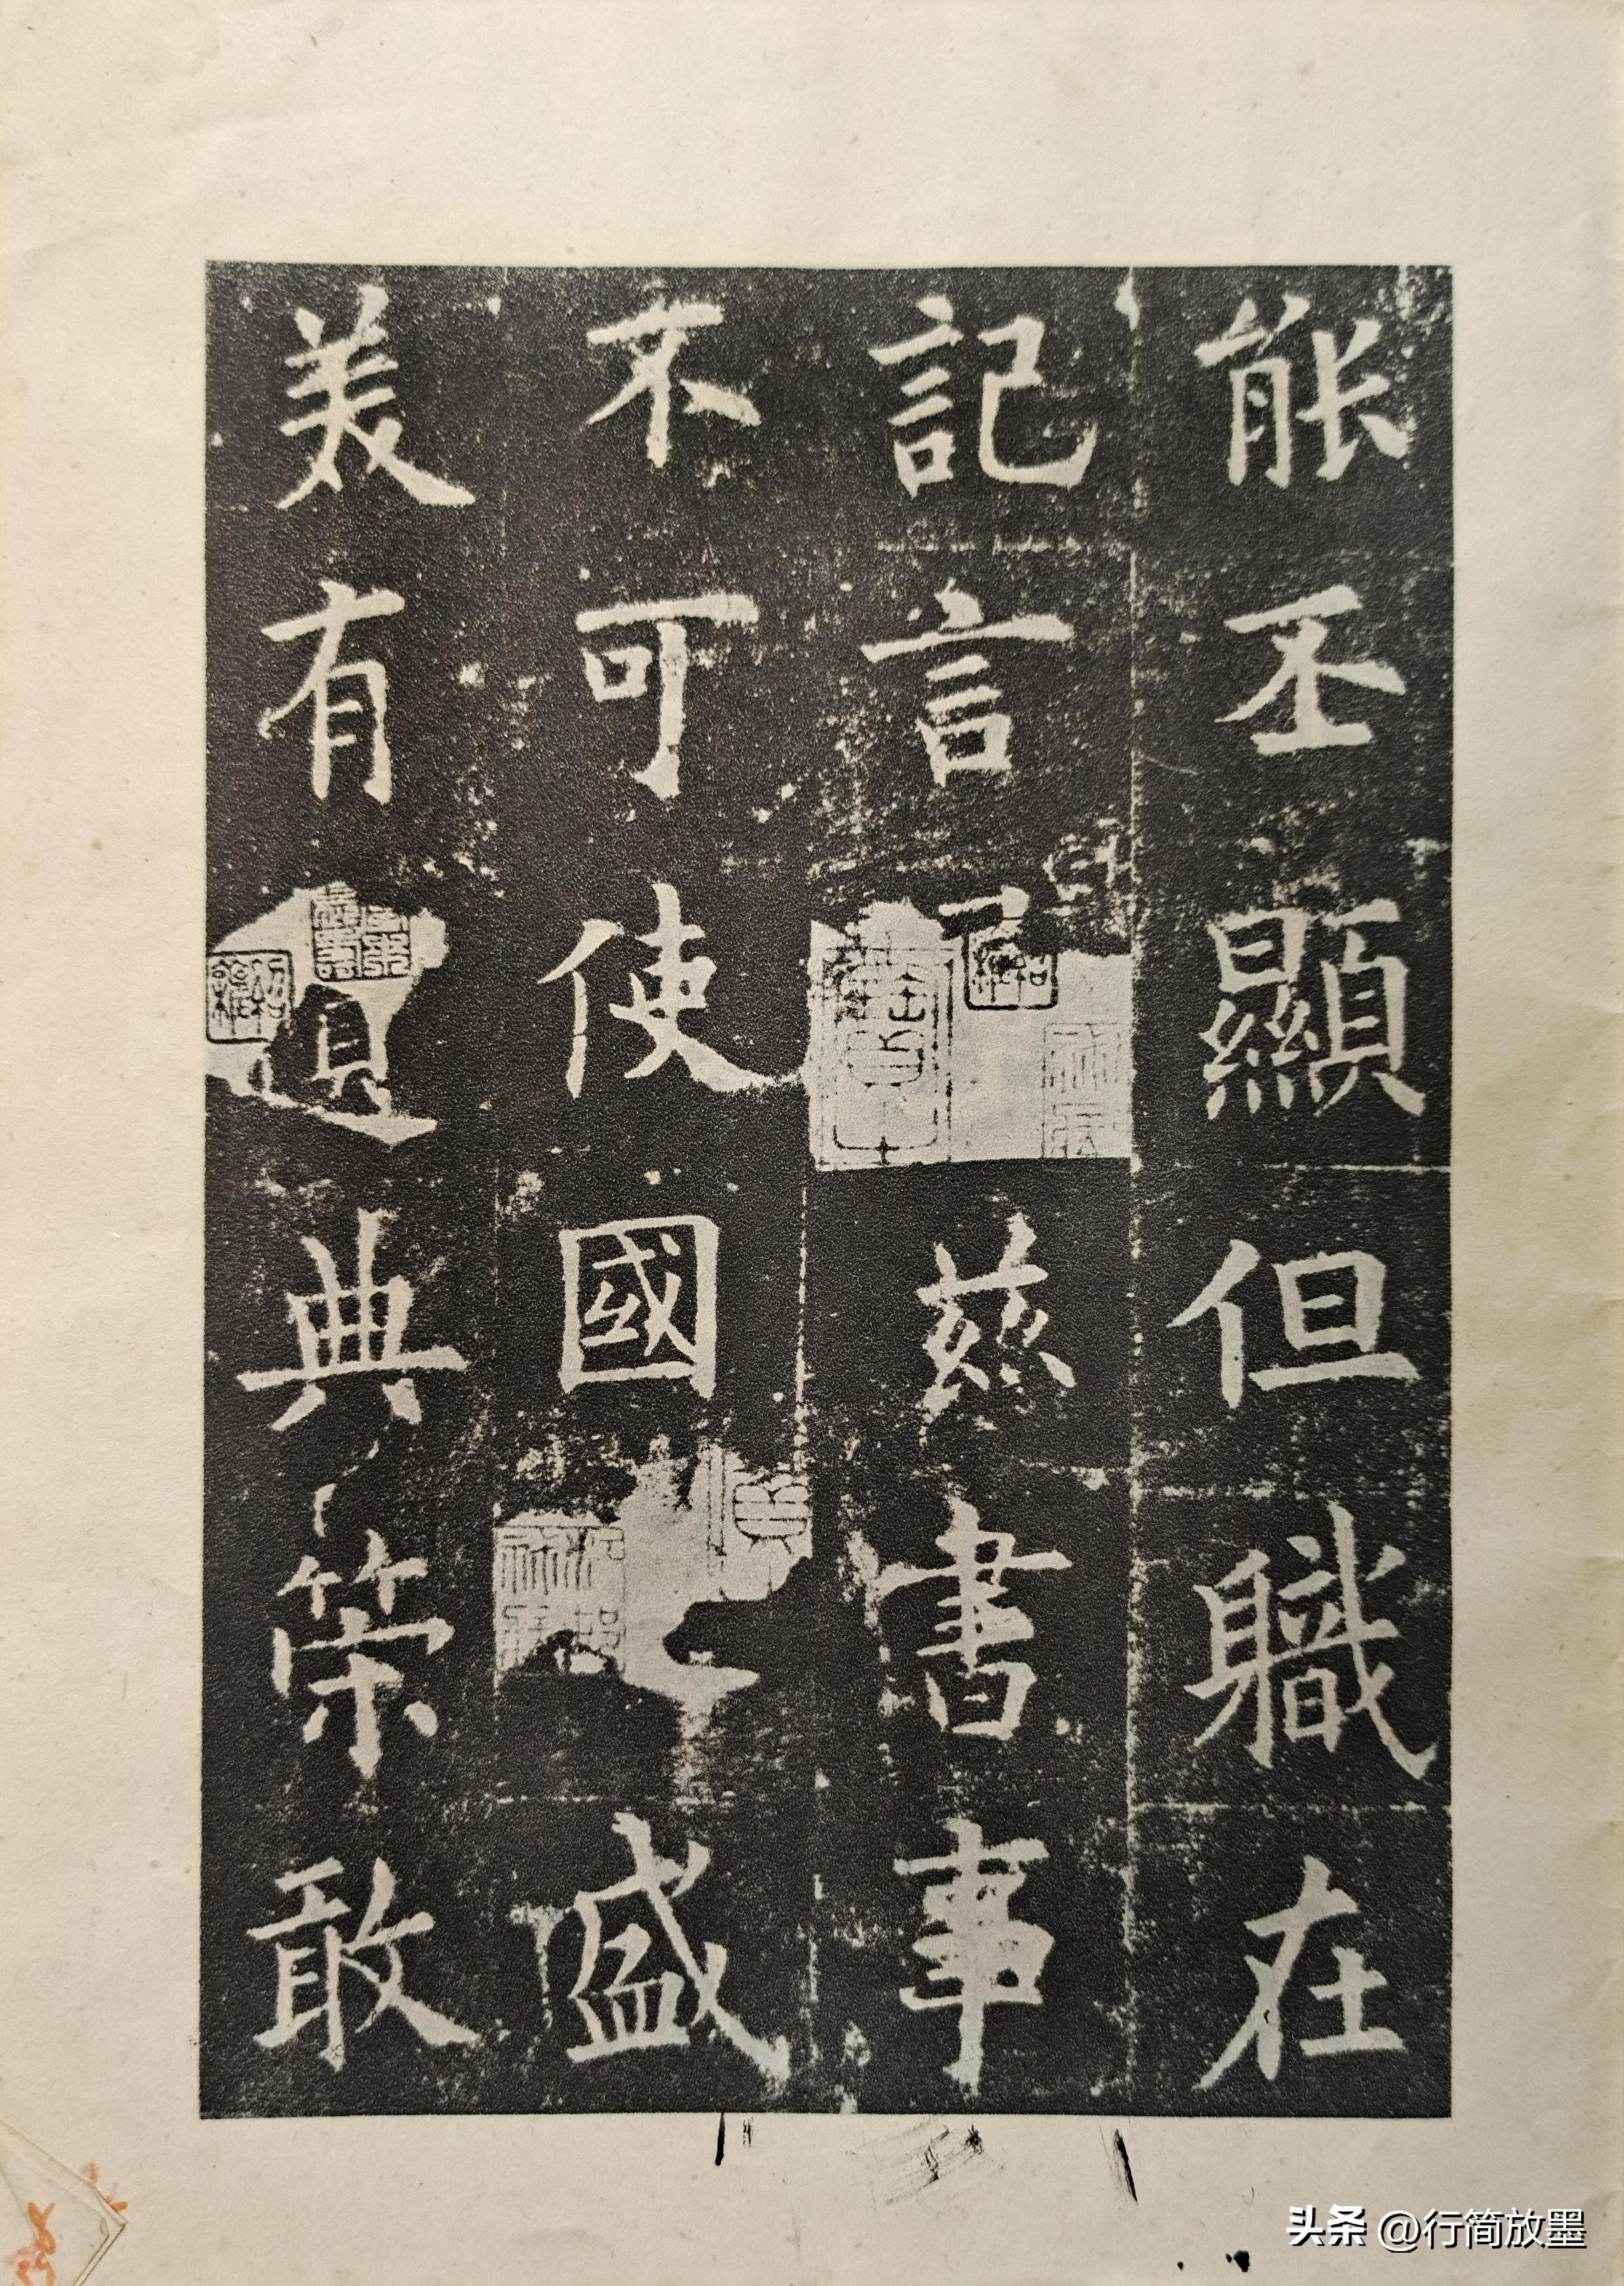 能丕顯但職在
記言慈書事
不可使國盛
美有遺典崇敢
头条 @行简放墨